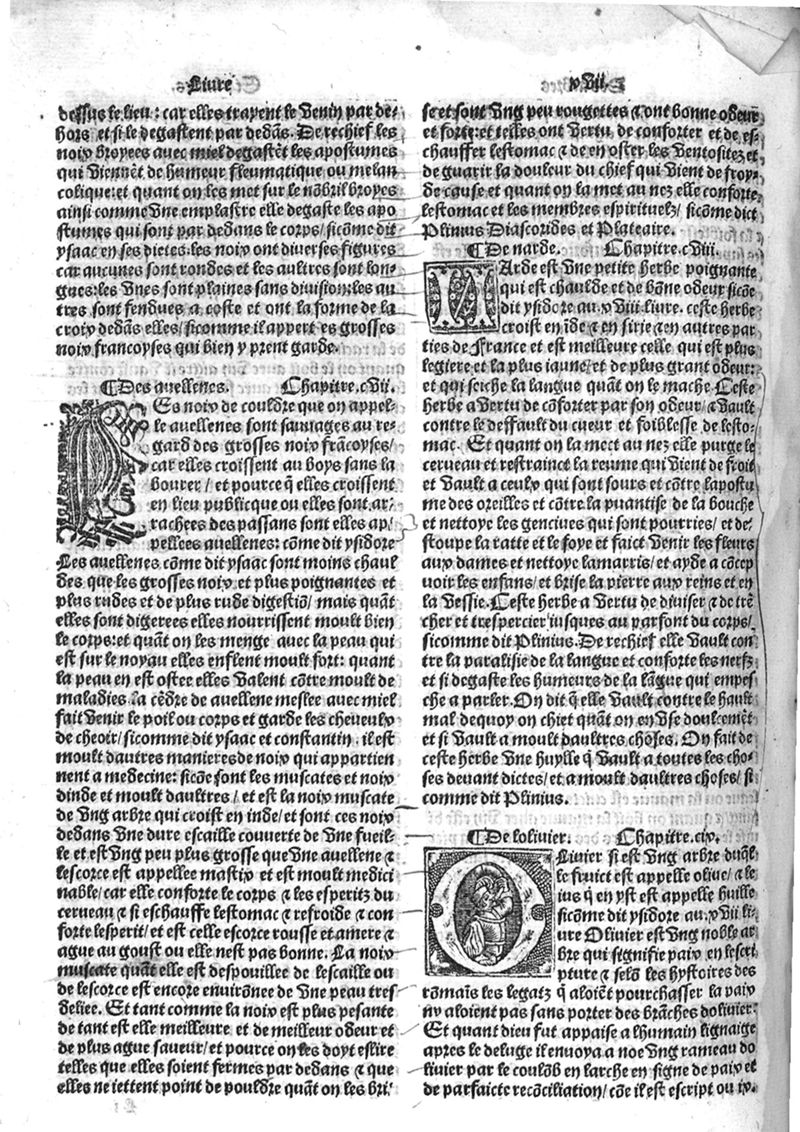 Liure
xvii.
dessus le lieu: car elles trayent le venin par de
hors et si le degastent par dedãs. De rechief les
noix broyees auec miel degastẽt les apostumes
qui viennẽt de humeur fleumatique ou melan
colique: et quant on les met sur le nõbril broyes
ainsi comme vne emplastre elle degaste les apo
stumes qui sont par dedans le corps/ sicõme dit
ysaac en ses dietes. les noix ont diuerses figures
car aucunes sont rondes et les aultres sont lon
gues: les vnes sont plaines sans diuision: les au
tres sont fendues a coste et ont la forme de la
croix dedãs elles/ sicomme il appert es grosses
noix francoyses qui bien y prent garde.
¶Des auellenes. Chapitre.cvii.
LEs noix de couldre que on appel
le auellenes sont sauuages au re
gard des grosses noix frãcoyses/
car elles croissent au boys sans la
bourer/ et pource q̃ elles croissent
en lieu publicque ou elles sont ar
rachees des passans sont elles ap/
pellees auellenes: cõme dit ysidore
Les auellenes cõme dit ysaac sont moins chaul
des que les grosses noix et plus poignantes et
plus rudes et de plus rude digestiõ/ mais quãt
elles sont digerees elles nourrissent moult bien
le corps: et quãt on les menge auec la peau qui
est sur le noyau elles enflent moult fort: quant
la peau en est ostee elles valent cõtre moult de
maladies la cẽdre de auellene meslee auec miel
fait venir le poil ou corps et garde les cheueulx
de cheoir/ sicomme dit ysaac et constantin. il est
moult dautres manieres de noix qui appartien
nent a medecine: sicõe sont les muscates et noix
dinde et moult daultres/ et est la noix muscate
de vng arbre qui croist en inde/ et sont ces noix
dedans vne dure escaille couuerte de vne fueil
le et est vng peu plus grosse que vne auellene et
lescorce est appellee mastix et est moult medici
nable/ car elle conforte le corps et les esperitz du
cerueau et si eschauffe lestomac et refroide et con
forte lesperit/ et est celle escorce rousse et amere et
ague au goust ou elle nest pas bonne. La noix
muscate quãt elle est despouillee de lescaille ou
de lescorce est encore enuirõnee de vne peau tres
deliee. Et tant comme la noix est plus pesante
de tant est elle meilleure et de meilleur odeur et
de plus ague saueur/ et pource on les doyt eslire
telles que elles soient fermes par dedans et que
elles ne iettent point de pouldre quãt on les bri/
se et sont vng peu rougettes et ont bonne odeur
et forte: et telles ont vertu de conforter et de es
chauffer lestomac et de en oster les ventositez et
de guarir la douleur du chief qui vient de froy
de cause et quant on la met au nez elle conforte
lestomac et les membres espirituelz/ sicõme dict
Plinius Diascorides et Plateaire.
¶De narde. Chapitre.cviii.
NArde est vne petite herbe poignante
qui est chaulde et de bõne odeur sicõe
dit ysidore au.xviii.liure. ceste herbe
croist en ide et en sirie et en autres par
ties de France et est meilleure celle qui est plus
legiere et la plus iaune/ et de plus grant odeur:
et qui seiche la langue quãt on le mache Ceste
herbe a vertu de cõforter par son odeur/ et vault
contre le deffault du cueur et foiblesse de lesto/
mac. Et quant on la mect au nez elle purge le
cerueau et restrainct la reume qui vient de froit
et vault a ceulx qui sont sours et cõtre lapostu
me des oreilles et cõtre la puantise de la bouche
et nettoye les genciues qui sont pourries/ et de
stoupe la ratte et le foye et faict venir les fleurs
aux dames et nettoye lamarris/ et ayde a cõcep
uoir les enfans/ et brise la pierre aux reins et en
la vessie. Ceste herbe a vertu de diuiser et de trẽ
cher et trespercier iusques au parfont du corps/
sicomme dit Plinius. De rechief elle vault con
tre la paralisie de la langue et conforte les nerfz
et si degaste les humeurs de la lãgue qui empes
che a parler. On dit q̃ elle vault contre le hault
mal dequoy on chiet quãt on en vse doulcemẽt
et si vault a moult daultres choses. On fait de
ceste herbe vne huylle q̃ vault a toutes les cho/
ses deuant dictes/ et a moult daultres choses/ si
comme dit Plinius.
¶De loliuier. Chapitre.cix.
OLiuier si est vng arbre duq̃l
le fruict est appelle oliue/ et le
ius q̃ en yst est appelle huille
sicõme dit ysidore au.xvii li/
ure Oliuier est vng noble ar/
bre qui signifie paix en lescri
pture et selõ les hystoires des
rõmaĩs les legatz q̃ aloiẽt pourchasser la paix
ny aloient pas sans porter des brãches doliuier
Et quant dieu fut appaise a lhumain lignaige
apres le deluge il enuoya a noe vng rameau do
liuier par le coulõb en larche en signe de paix et
de parfaicte recõciliation/ cõe il est escript ou ix.